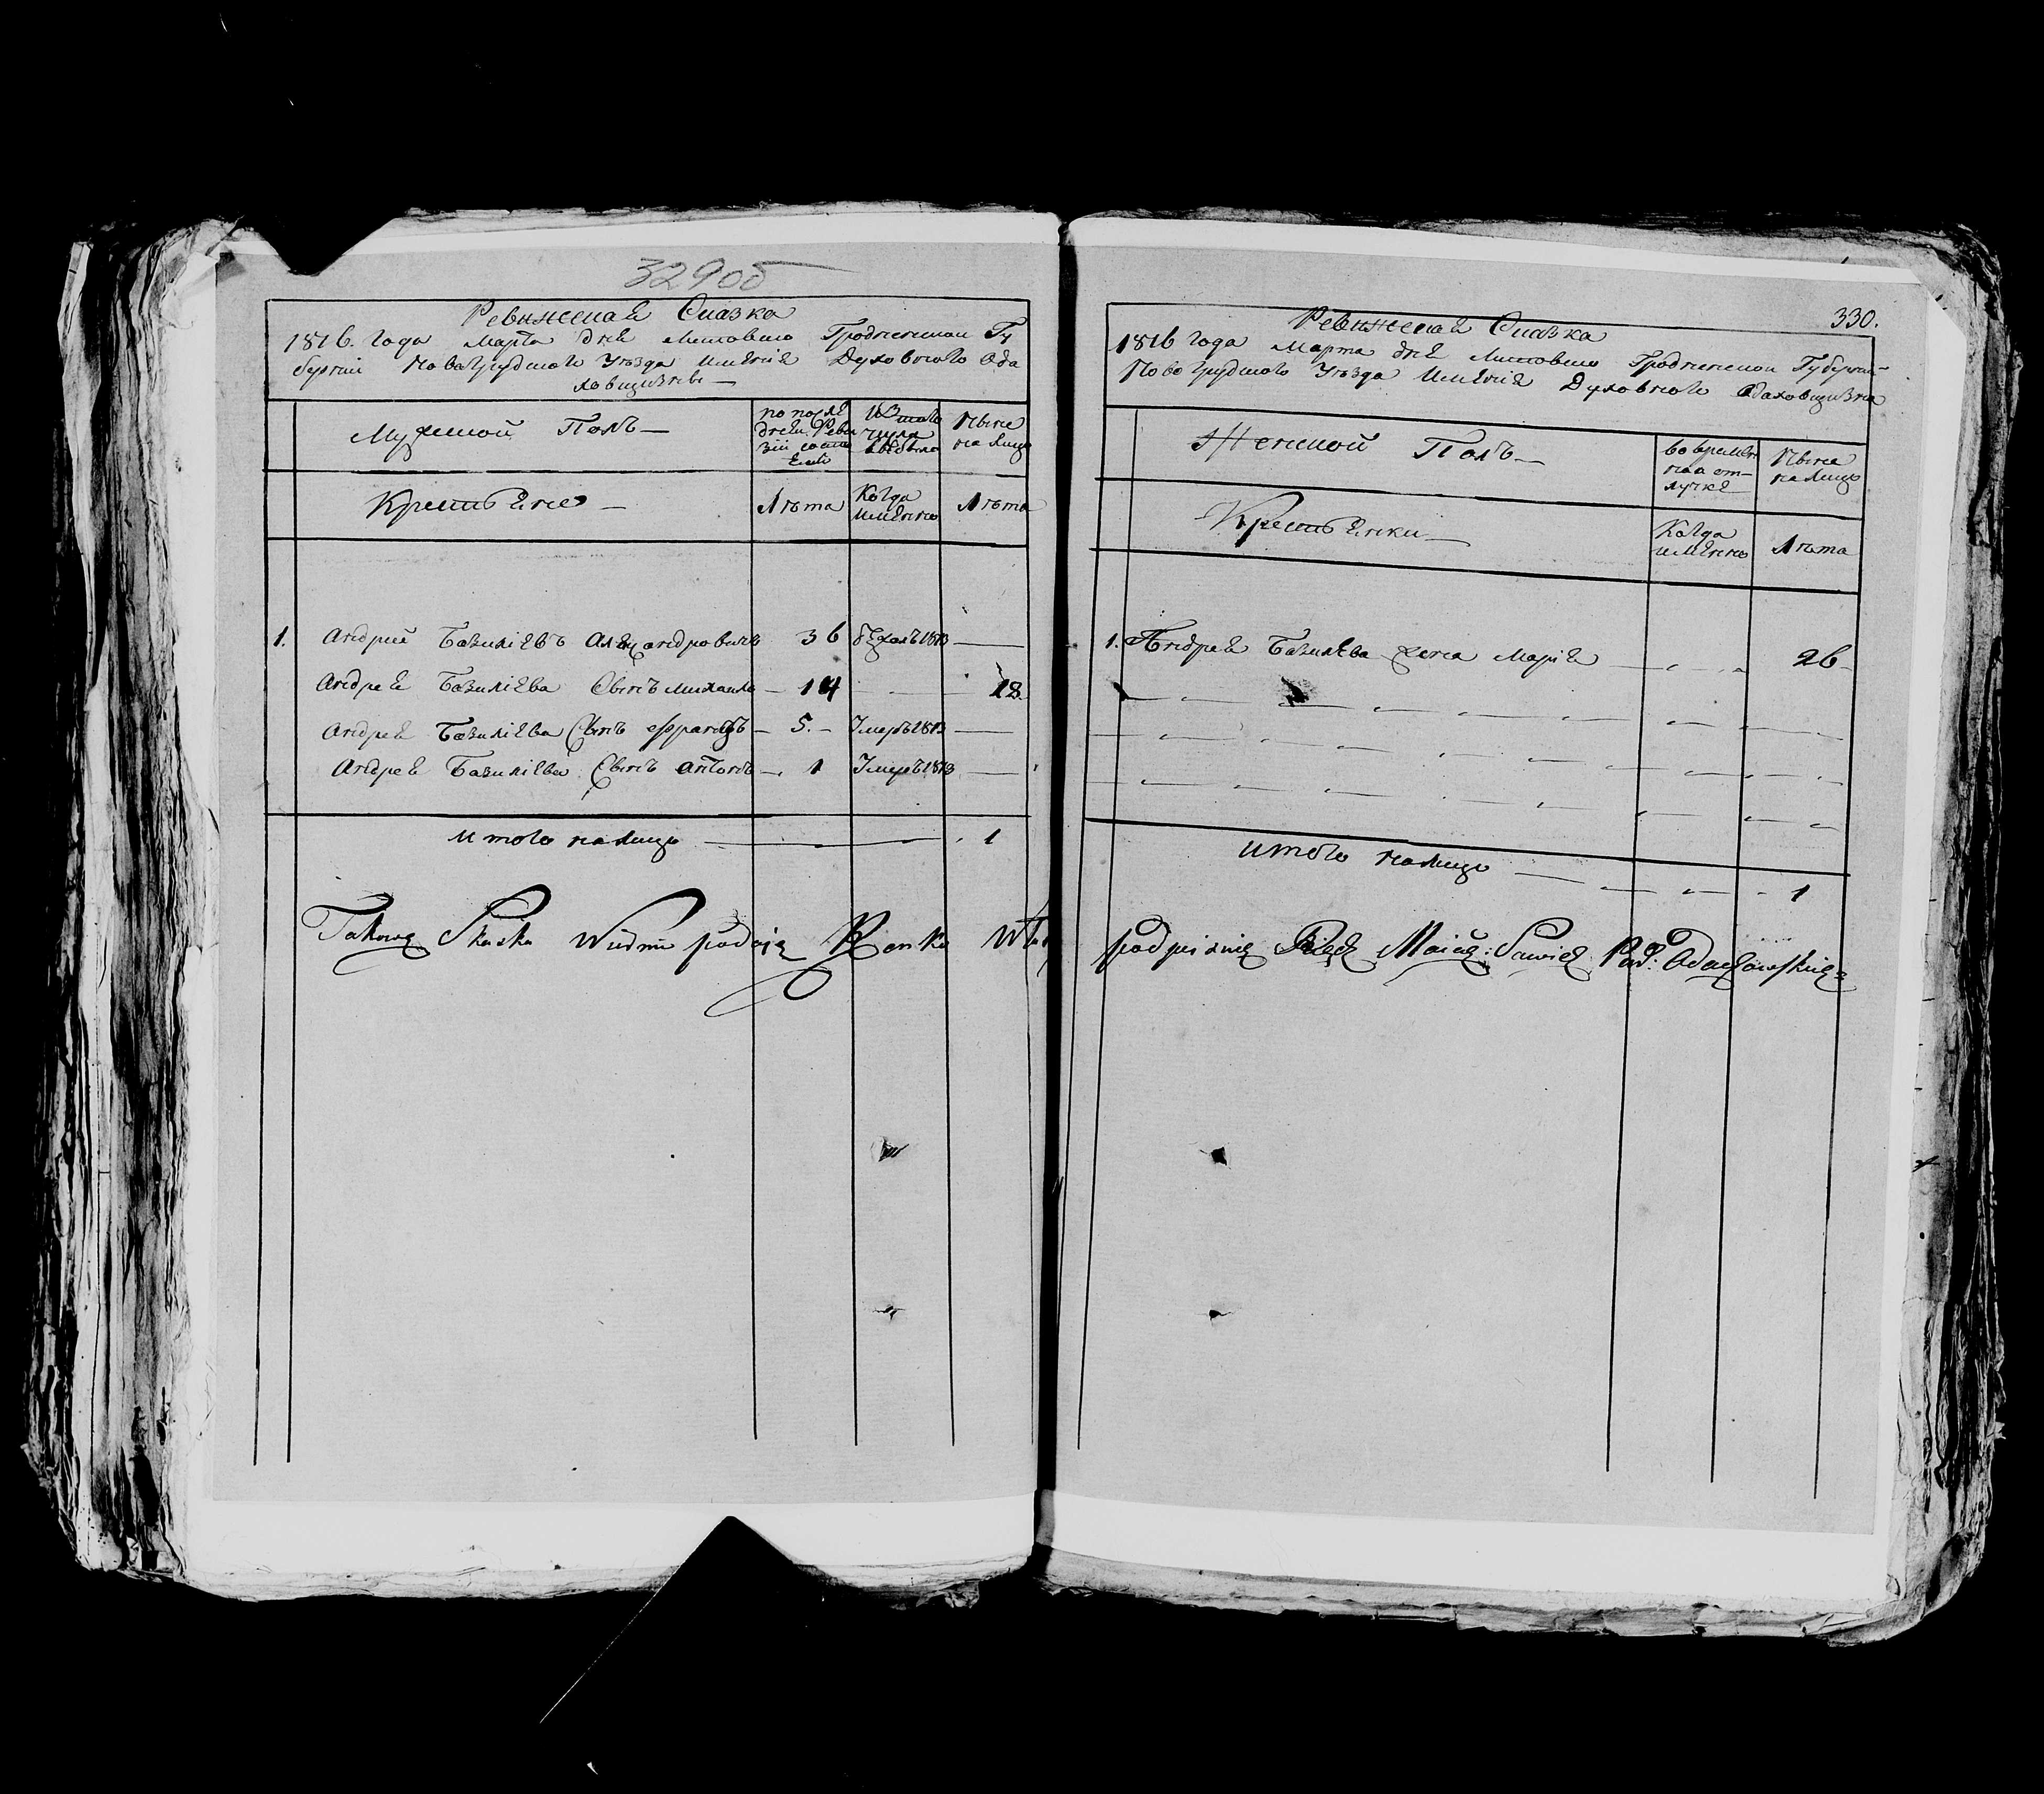 329об
Ревижская Сказка
1816. года Марта дня Литовско Гродненской Гу
берніи Новагрудского Уѣзда Имѣнія Духовного Ода
ховщизны
Мужской Полъ
по послѣ
дней Реви
зіи состо
яли
изъ того
числа
выбыло
Ныне
на лицо
Крестьяне
Лѣта
Когда
имянно
Лѣта
1. Андрий Базиліевъ Александровичъ 36 бѣжалъ 1813
Андрея Базиліева Сынъ Михаилъ 14 18
Андрея Базиліева Сынъ Францъ 5. Умеръ 1813
Андрея Базиліева Сынъ Антонъ 1 Умеръ 1813
Итого налицо 1
Takową Skaskę podaię
330.
Ревижская Сказка
1816 года Марта дня Литовско Гродненской Губерніи
Новогрудского Уѣзда Имѣнія Духовного Одаховщизна
Женской Полъ
во времян
ной от
лучкѣ
Ныне
налицо
Крестьянки
Когда
имянно
Лѣта
1. Андрея Базилева жена Марія 26
Итого налицо 1
podpisuię